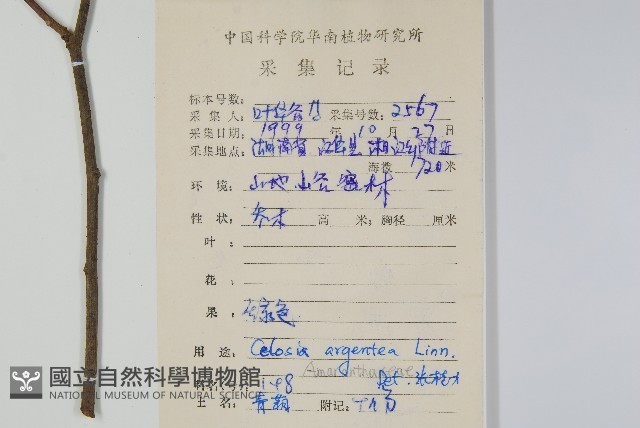 中国科学院华南植物研究所
采集记录
标本号数:
采集人: 叶华谷 采集号数: 2567
采集日期: 1999 年 10 月 27 日
采集地点: 湖南省 江华县 湘江乡附近
海拔 720 米
环境: 山地山谷密林
性状: 乔木 高 米; 胸径 厘米
叶:
花:
果: 色
用途: Celosia argentea Linn.
Amaranthaceae
Det. 张桂才
土名: 青葙 附记:
國立自然科學博物館
NATIONAL MUSEUM OF NATURAL SCIENCE